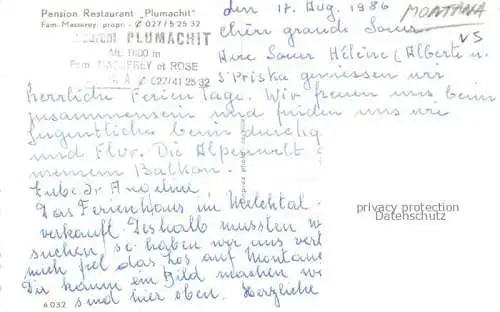 Pension Restaurant „Plumachit"
Fam. Masserey, propr. - ✆ 027/5 25 32
PLUMACHIT
Alt. 1800 m
Fam. MASSEREY et ROSE
✆ 027/41 25 32
den 17. Aug. 1986
MONTANA
VS
chère grande Soeur
Hélène (Alberte u.
Priska geniessen wir
herrliche Ferien Tage. Wir freuen uns beim
zusammensein und finden uns wie
Jugentliche beim
und Flur. Die Alpenwelt
meinem Balkon.
Liebe Sr Angeline
Das Ferienhaus im Melchtal
verkauft. Deshalb mussten w
suchen, so haben wir uns vert
mich fiel das Los auf Montane
Du kann ein Bild machen wi
sind hier oben. Herzliche
6032
privacy protection
Datenschutz